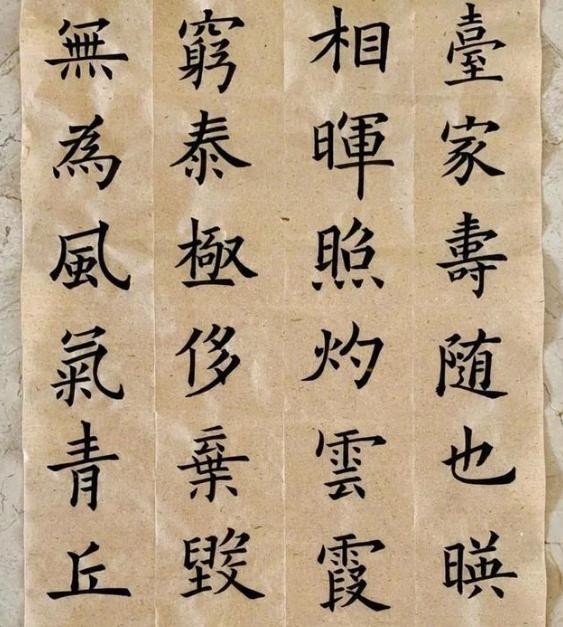 臺家壽随也暎
相暉照灼雲霞
窮泰極侈棄毀
無為風氣青丘